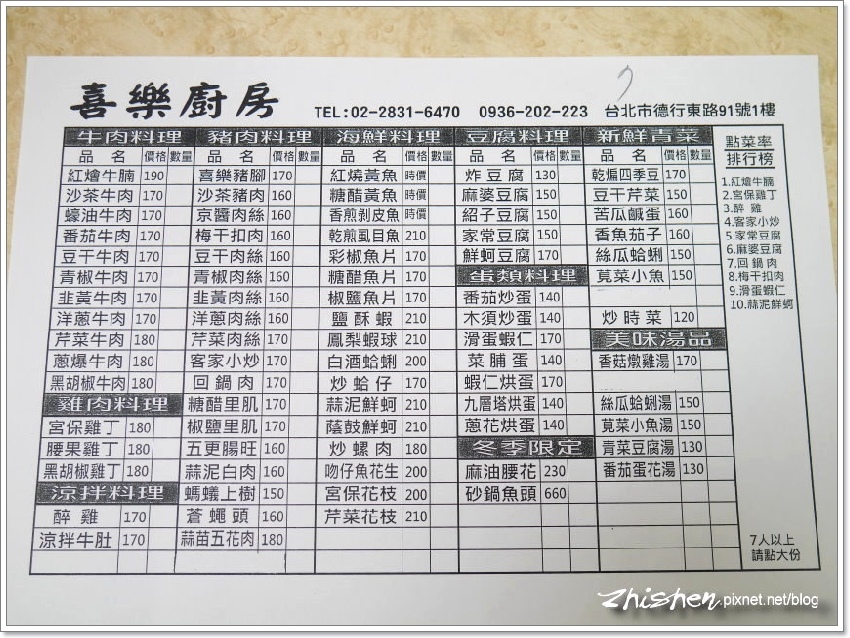 喜樂廚房 TEL:02-2831-6470 0936-202-223 台北市德行東路91號1樓
牛肉料理
品名 價格 數量
紅燴牛腩 190
沙茶牛肉 170
蠔油牛肉 170
番茄牛肉 170
豆干牛肉 170
青椒牛肉 170
韭黃牛肉 170
洋蔥牛肉 170
芹菜牛肉 180
蔥爆牛肉 180
黑胡椒牛肉 180
雞肉料理
宮保雞丁 180
腰果雞丁 180
黑胡椒雞丁 180
涼拌料理
醉雞 170
涼拌牛肚 170
豬肉料理
品名 價格 數量
喜樂豬腳 170
沙茶豬肉 160
京醬肉絲 160
梅干扣肉 160
豆干肉絲 160
青椒肉絲 160
韭黃肉絲 160
洋蔥肉絲 160
芹菜肉絲 160
客家小炒 170
回鍋肉 170
糖醋里肌 170
椒鹽里肌 170
五更腸旺 160
蒜泥白肉 160
螞蟻上樹 150
蒼蠅頭 160
蒜苗五花肉 180
海鮮料理
品名 價格 數量
紅燒黃魚 時價
糖醋黃魚 時價
香煎剝皮魚 時價
乾煎虱目魚 210
彩椒魚片 170
糖醋魚片 170
椒鹽魚片 170
鹽酥蝦 210
鳳梨蝦球 210
白酒蛤蜊 200
炒蛤仔 170
蒜泥鮮蚵 210
蔭鼓鮮蚵 210
炒螺肉 180
吻仔魚花生 200
宮保花枝 200
芹菜花枝 210
豆腐料理
品名 價格 數量
炸豆腐 130
麻婆豆腐 150
紹子豆腐 150
家常豆腐 150
鮮蚵豆腐 170
蛋類料理
番茄炒蛋 140
木須炒蛋 140
滑蛋蝦仁 170
菜脯蛋 140
蝦仁烘蛋 170
九層塔烘蛋 140
蔥花烘蛋 140
冬季限定
麻油腰花 230
砂鍋魚頭 660
新鮮青菜
品名 價格 數量
乾煸四季豆 170
豆干芹菜 150
苦瓜鹹蛋 160
香魚茄子 160
絲瓜蛤蜊 150
莧菜小魚 150
炒時菜 120
美味湯品
香菇燉雞湯 170
絲瓜蛤蜊湯 150
莧菜小魚湯 150
青菜豆腐湯 130
番茄蛋花湯 130
點菜率
排行榜
1.紅燴牛腩
2.宮保雞丁
3.醉雞
4.客家小炒
5.家常豆腐
6.麻婆豆腐
7.回鍋肉
8.梅干扣肉
9.滑蛋蝦仁
10.蒜泥鮮蚵
7人以上
請點大份
zhishen.pixnet.net/blog